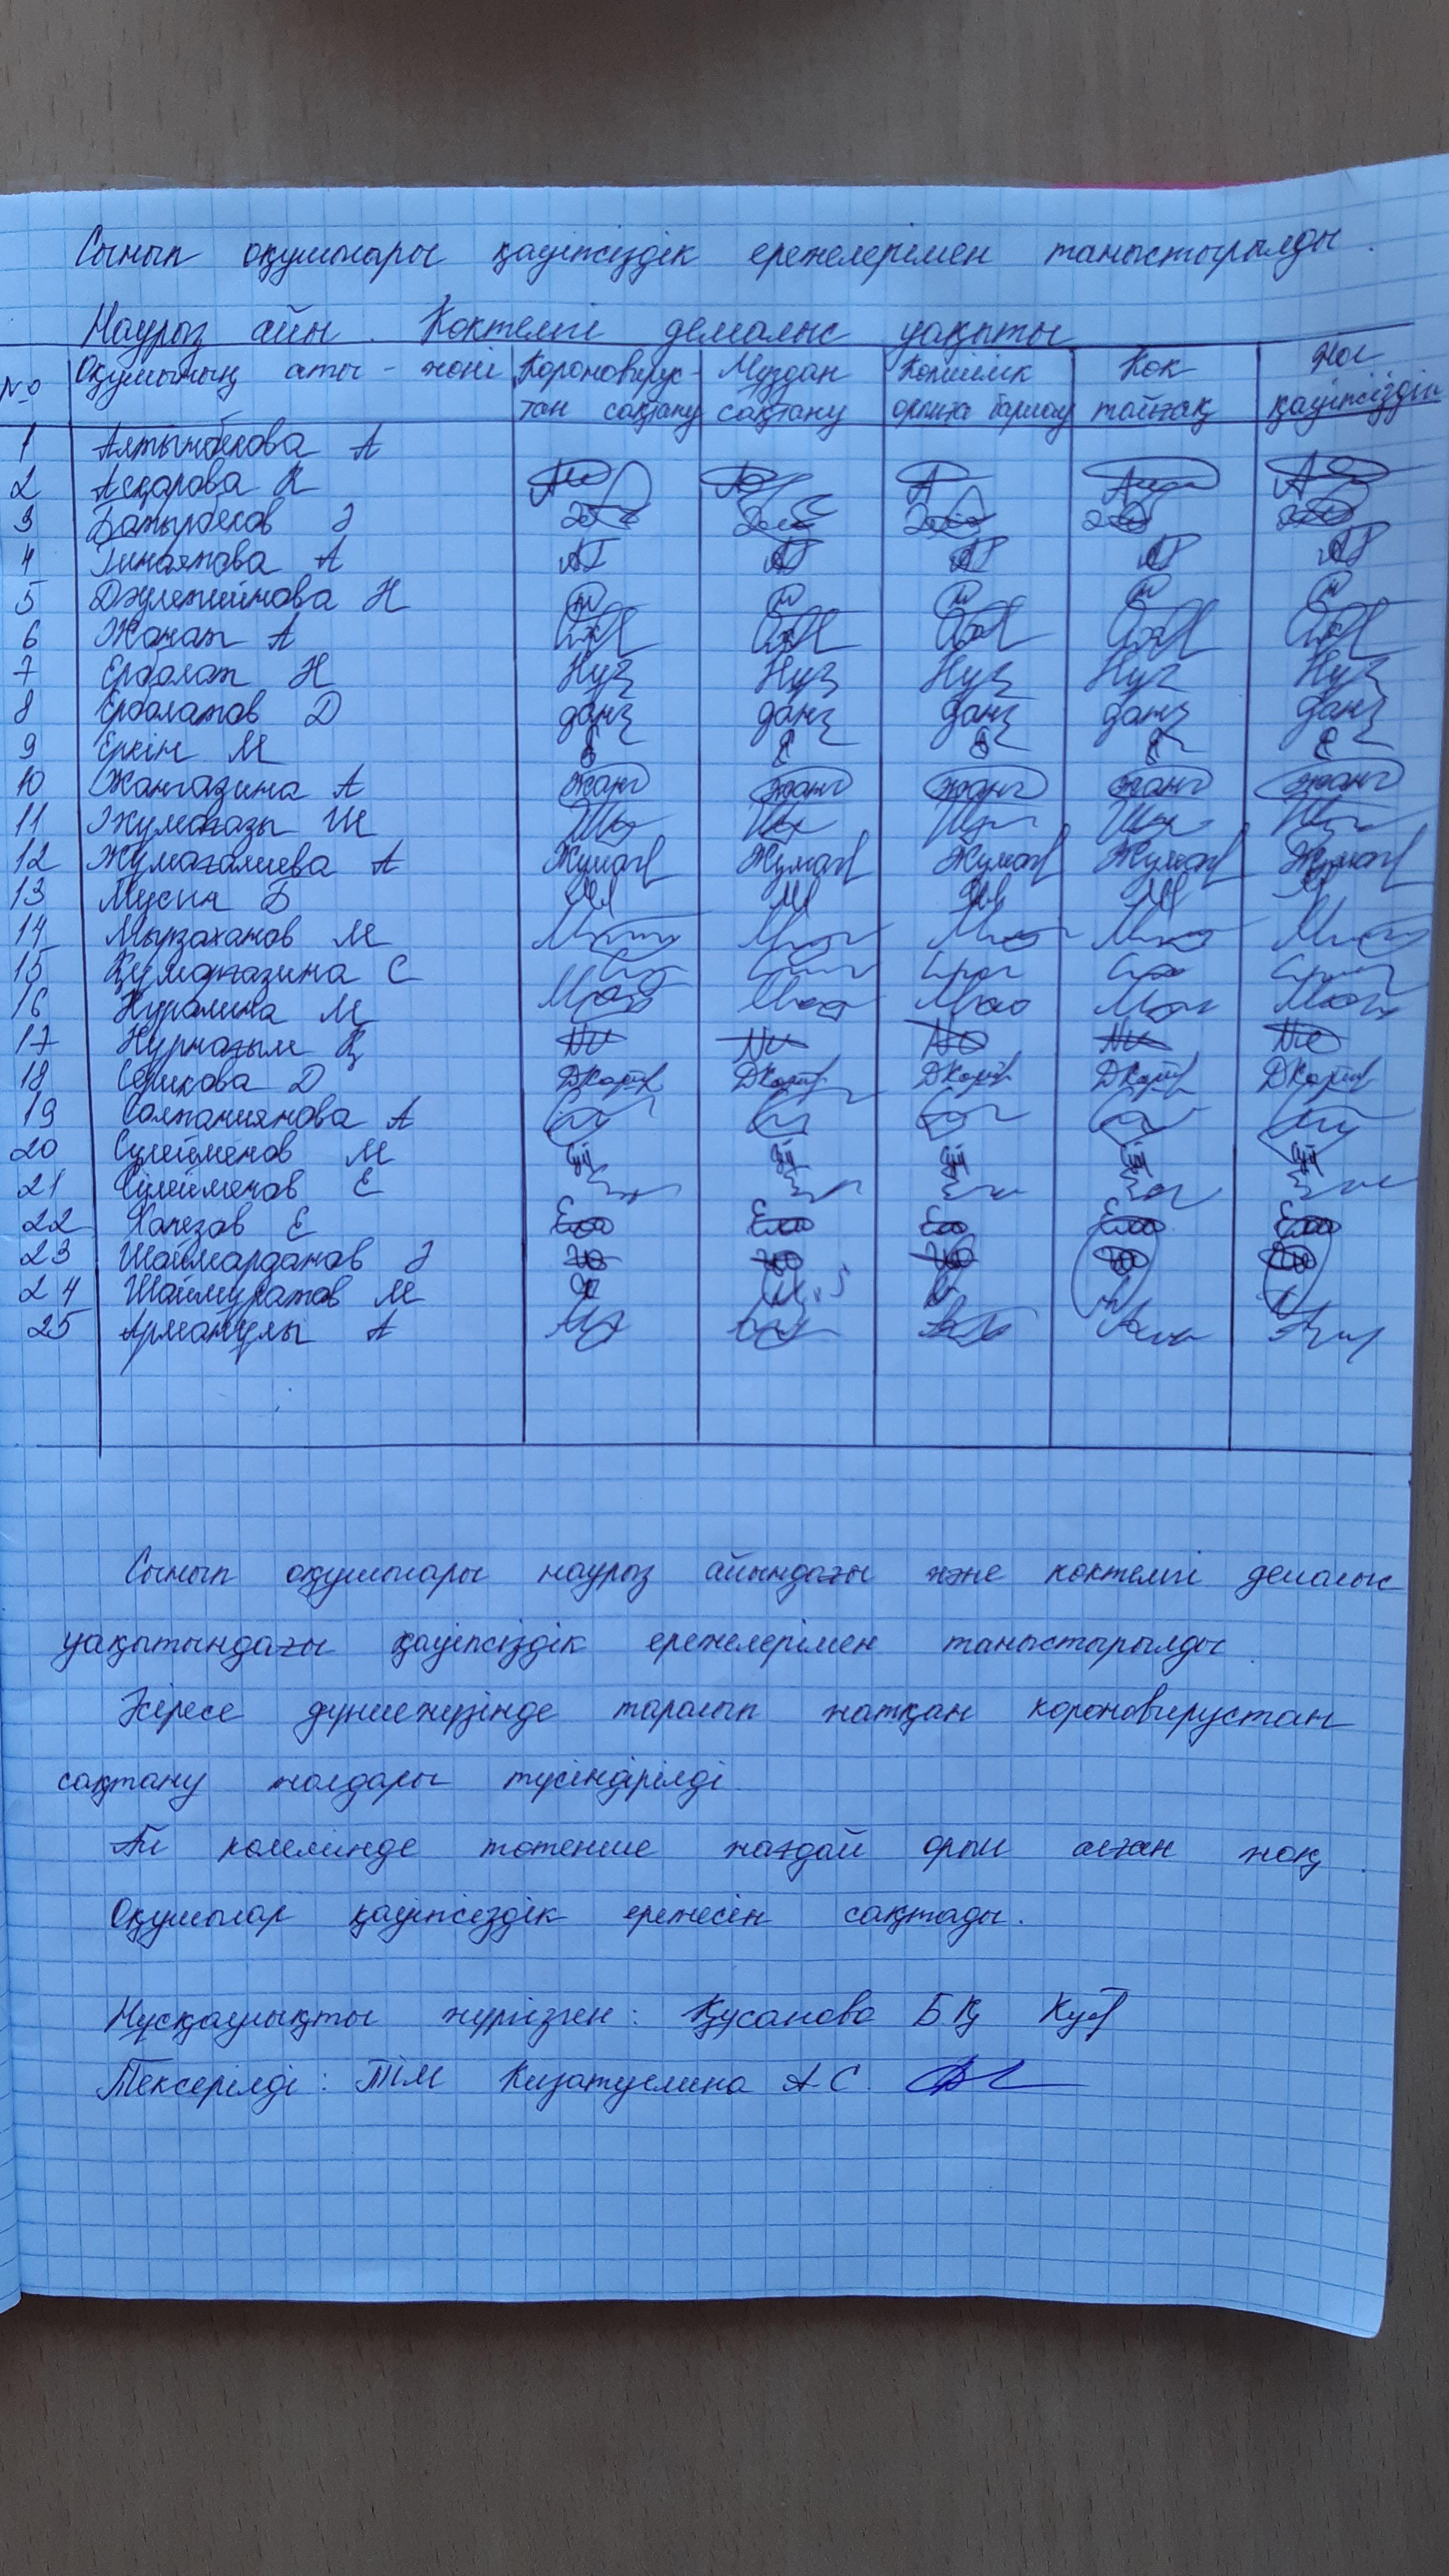 Сынып оқушылары қауіпсіздік ережелерімен таныстырылды.
Наурыз айы. Көктемгі демалыс уақыты
№ Оқушының аты - жөні Короновирус- Мұздан Көпшілік Көк Жол
тан сақтану сақтану орынға бармау тайғақ қауіпсіздік
1 Алтынбекова А
2 Асқарова К
3 Батырбеков Ә
4 Гинаятова А
5 Джулетпинова Н
6 Жанат А
7 Ерболат Н Нуз Нуз Нуз Нуз Нуз
8 Ерболатов Д данз данз данз данз данз
9 Еркін М
10 Жангазина А жанг жанг жанг жанг жанг
11 Жұмағазы Ш
12 Жумагалиева А Жумаг Жумаг Жумаг Жумаг Жумаг
13 Мусин Б
14 Мырзаханов М
15 Құмарғазина С
16 Нуралина М
17 Нурмағым Қ
18 Серикова Д
19 Солтаниянова А
20 Сулейменов М
21 Сулейменов Е
22 Хапезов Е
23 Шаймарданов Ә
24 Шаймуратов М
25 Арманұлы А
Сынып оқушылары наурыз айындағы және көктемгі демалыс
уақытындағы қауіпсіздік ережелерімен таныстырылды.
Әсіресе дүниежүзінде таралып жатқан короновирустан
сақтану жолдары түсіндірілді.
Ай көлемінде төтенше жағдай орын алған жоқ.
Оқушылар қауіпсіздік ережесін сақтады.
Нұсқаулықты жүргізген: Құсанова Б Қ
Тексерілді: ТІМ Кизатуллина А С.